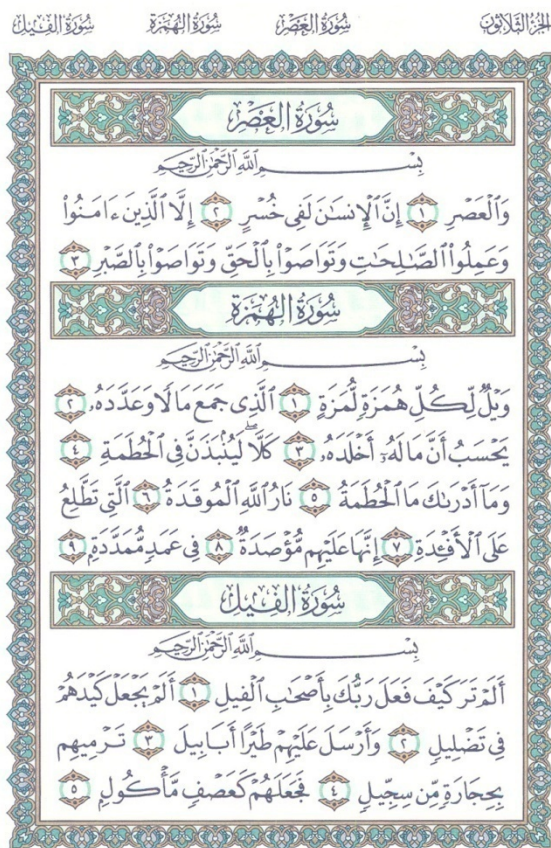 الجزء الثلاثون سورة العصر سورة الهمزة سورة الفيل
سُورَةُ العَصْرِ
بِسْمِ ٱللَّهِ ٱلرَّحْمَٰنِ ٱلرَّحِيمِ
وَٱلْعَصْرِ ١ إِنَّ ٱلْإِنسَٰنَ لَفِى خُسْرٍ ٢ إِلَّا ٱلَّذِينَ ءَامَنُوا۟
وَعَمِلُوا۟ ٱلصَّٰلِحَٰتِ وَتَوَاصَوْا۟ بِٱلْحَقِّ وَتَوَاصَوْا۟ بِٱلصَّبْرِ ٣
سُورَةُ الهُمَزَةِ
بِسْمِ ٱللَّهِ ٱلرَّحْمَٰنِ ٱلرَّحِيمِ
وَيْلٌ لِّكُلِّ هُمَزَةٍ لُّمَزَةٍ ١ ٱلَّذِى جَمَعَ مَالًا وَعَدَّدَهُۥ ٢
يَحْسَبُ أَنَّ مَالَهُۥٓ أَخْلَدَهُۥ ٣ كَلَّا ۖ لَيُنۢبَذَنَّ فِى ٱلْحُطَمَةِ ٤
وَمَآ أَدْرَىٰكَ مَا ٱلْحُطَمَةُ ٥ نَارُ ٱللَّهِ ٱلْمُوقَدَةُ ٦ ٱلَّتِى تَطَّلِعُ
عَلَى ٱلْأَفْـِٔدَةِ ٧ إِنَّهَا عَلَيْهِم مُّؤْصَدَةٌ ٨ فِى عَمَدٍ مُّمَدَّدَةٍۭ ٩
سُورَةُ الفِيلِ
بِسْمِ ٱللَّهِ ٱلرَّحْمَٰنِ ٱلرَّحِيمِ
أَلَمْ تَرَ كَيْفَ فَعَلَ رَبُّكَ بِأَصْحَٰبِ ٱلْفِيلِ ١ أَلَمْ يَجْعَلْ كَيْدَهُمْ
فِى تَضْلِيلٍ ٢ وَأَرْسَلَ عَلَيْهِمْ طَيْرًا أَبَابِيلَ ٣ تَرْمِيهِم
بِحِجَارَةٍ مِّن سِجِّيلٍ ٤ فَجَعَلَهُمْ كَعَصْفٍ مَّأْكُولٍۭ ٥